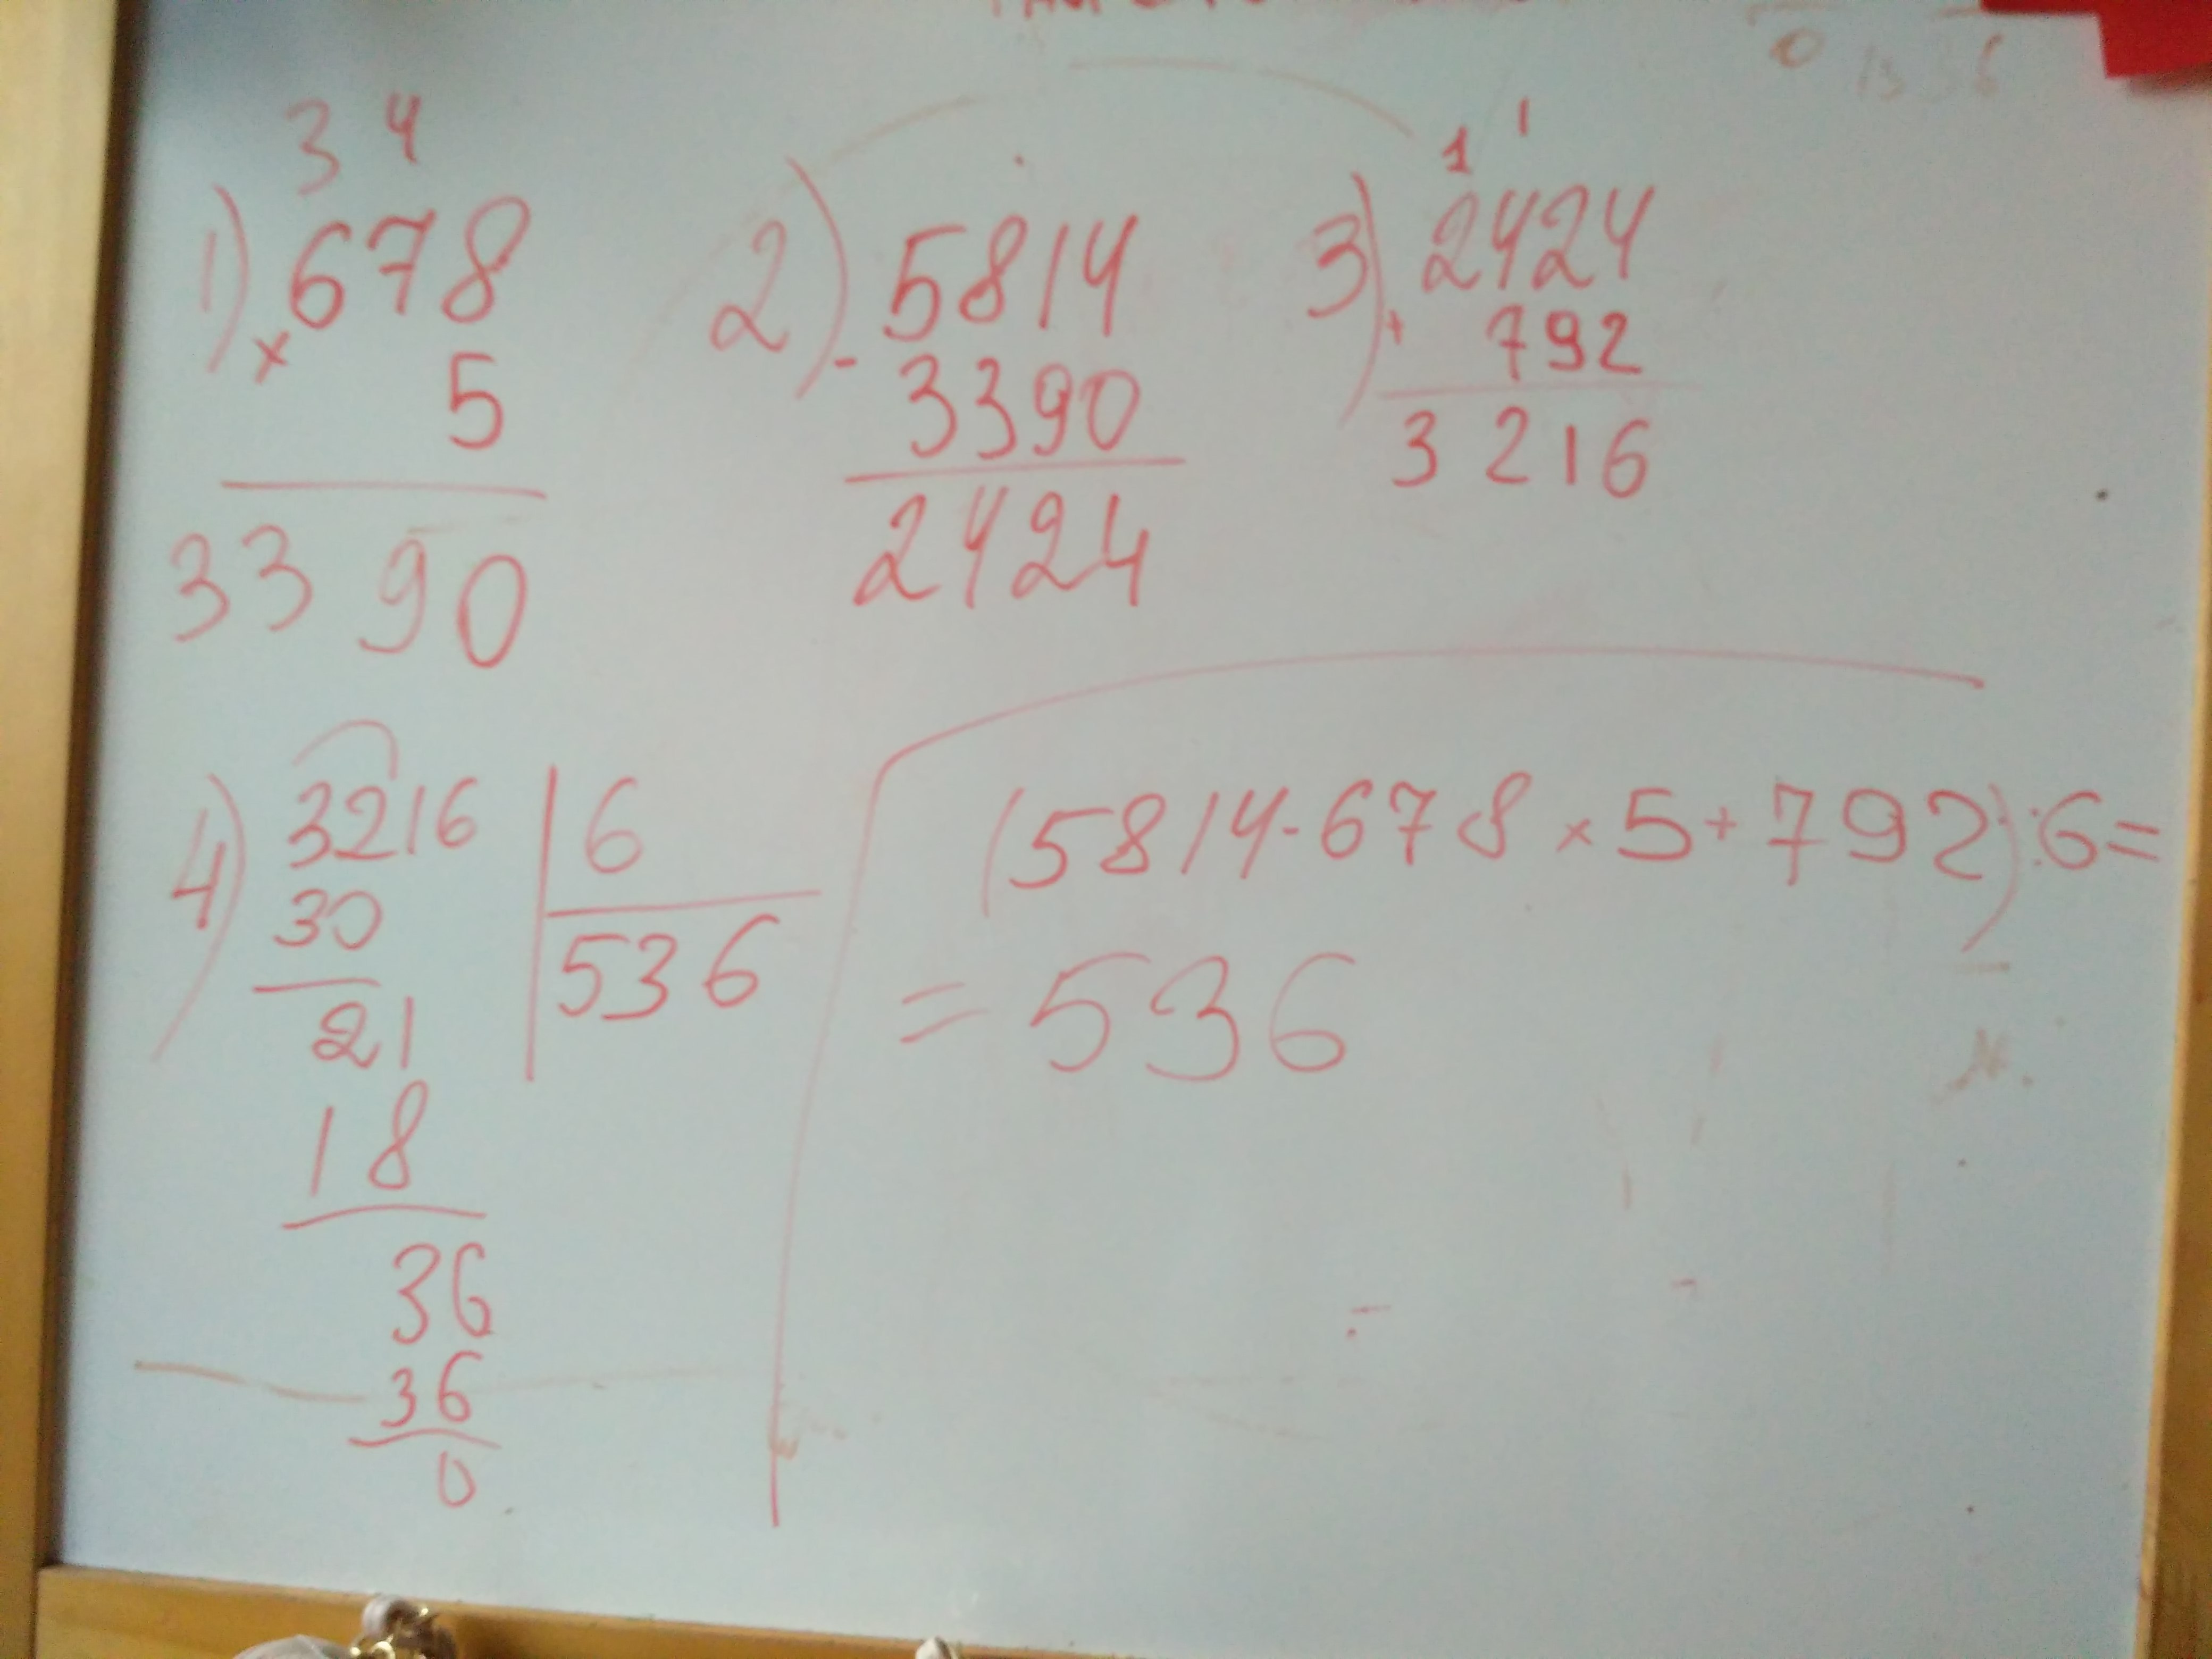 3 4
1) 678
× 5
3390
2) - 5814
3390
2424
1 1
3) + 2424
792
3216
4) 3216 | 6
30 536
21
18
36
36
0
(5814-678×5+792):6=
=536